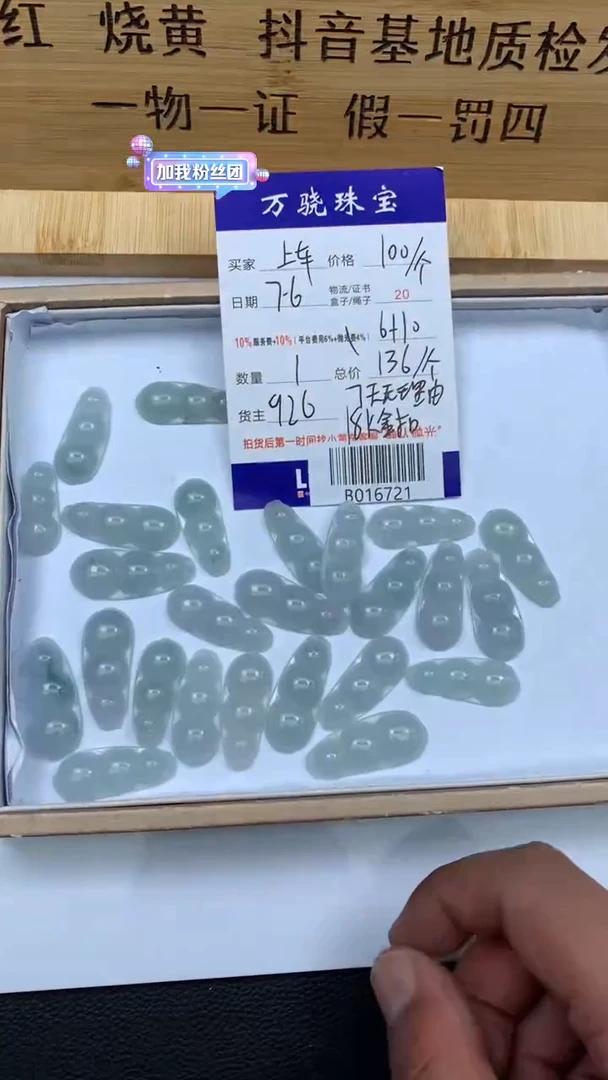 红 烧黄 抖音基地质检发
一物一证 假一罚四
加我粉丝团
万骁珠宝
买家 上车 价格 100/个
日期 7.6 物流/证书 盒子/绳子 20
10%服务费+10%（平台费用6%+抛光费4%） 6+10
数量 1 总价 136/个
货主 926 7天无理由
18K金扣
拍货后第一时间抄小黄
抛光"
L
B016721